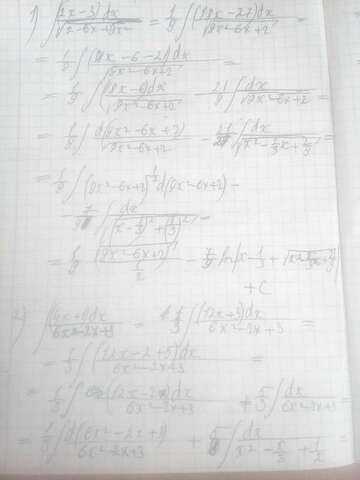 1) ∫ (2x-3)dx / √(2-6x+9x²) = 1/9 ∫ (18x-27)dx / √(9x²-6x+2) =
= 1/9 ∫ (18x-6-21)dx / √(9x²-6x+2) =
= 1/9 ∫ (18x-6)dx / √(9x²-6x+2) - 21/9 ∫ dx / √(9x²-6x+2) =
= 1/9 ∫ d(9x²-6x+2) / √(9x²-6x+2) - ∫ dx =
= 1/9 ∫ (9x²-6x+2) d(9x²-6x+2) -
- 7/9 ∫ dx / √((x-1/3)²+(1/3)²) =
= 1/9 √(9x²-6x+2) / (1/2) - 7/9 ln|x-1/3+
+ C
2) ∫ dx / 6x²-2x+3 = 1/3 ∫ (12x+3)dx / 6x²-2x+3 =
= 1/3 ∫ (12x-2+5)dx / 6x²-2x+3 =
= 1/3 ∫ (12x-2)dx / 6x²-2x+3 + 5/3 ∫ dx / 6x²-2x+3 =
= 1/3 ∫ d(6x²-2x+3) / 6x²-2x+3 + ∫ dx =